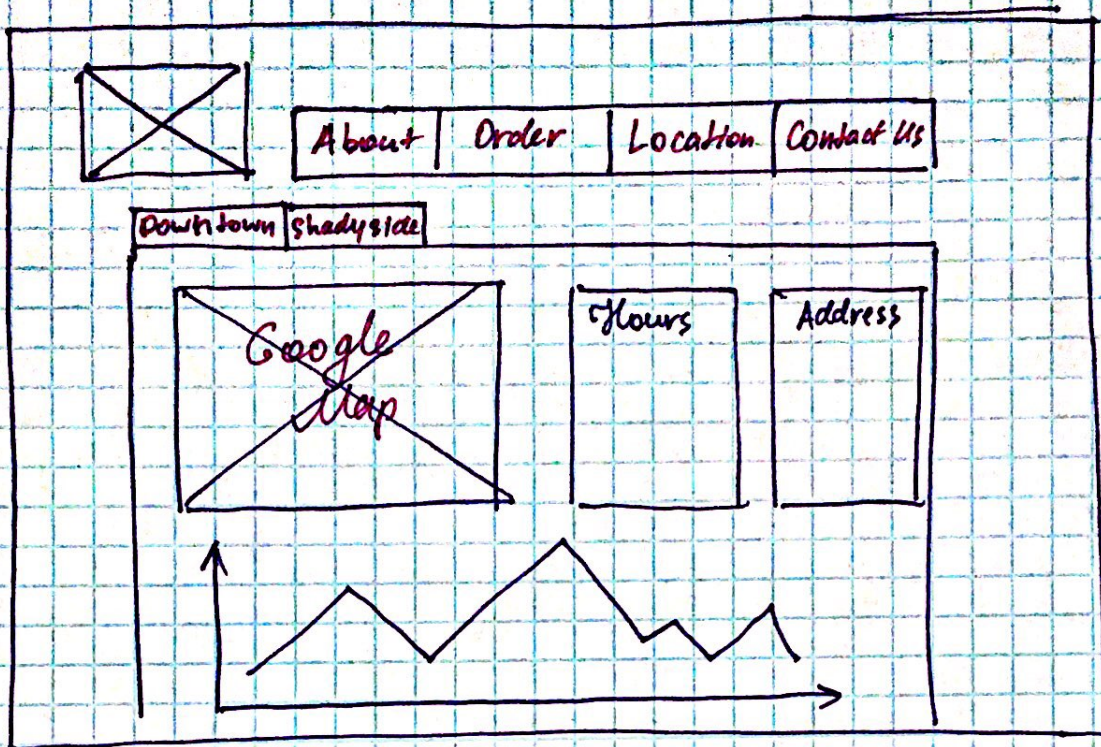 About Order Location Contact Us
Downtown Shadyside
Google
Map
Hours
Address